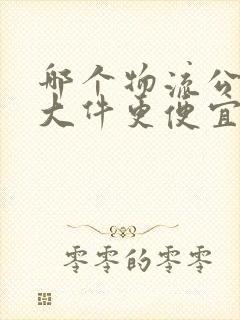 哪个物流公
大件更便宜
零零的零零